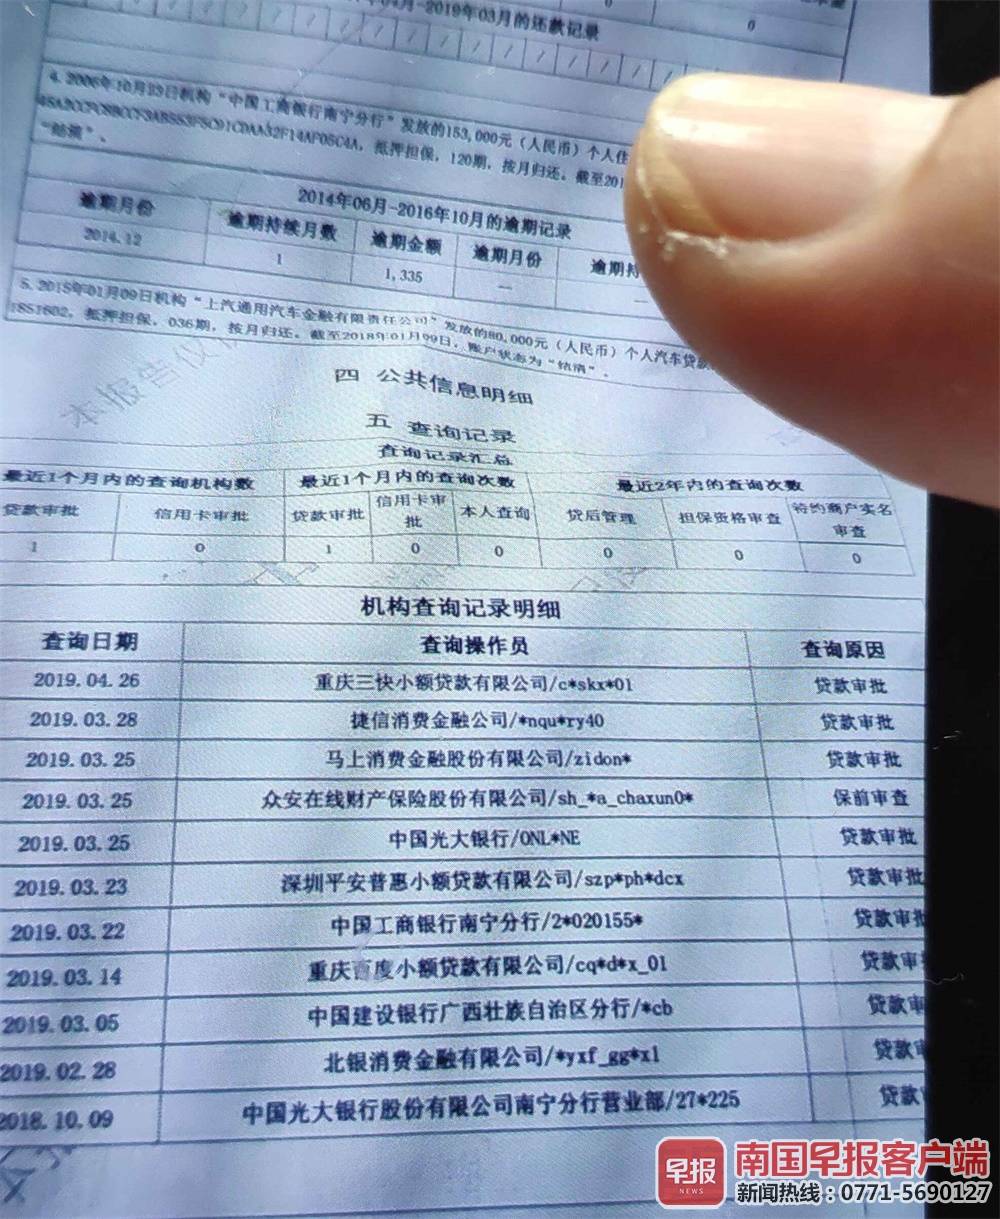 -2019年03月的还款记录
0
0
/ / / / / / / / / / /
4. 2006年10月23日机构“中国工商银行南宁分行”发放的153,000元（人民币）个人住
抵押担保，120期，按月归还。截至201
“结清”。
2014年06月-2016年10月的逾期记录
逾期月份 逾期持续月数 逾期金额 逾期月份 逾期持
2014.12 1 1,335 — —
5. 2015年01月09日机构“上汽通用汽车金融有限责任公司”发放的80,000元（人民币）个人汽车贷款
1851602，抵押担保，036期，按月归还。截至2018年01月09日，账户状态为“结清”。
本报告仅
四 公共信息明细
五 查询记录
查询记录汇总
最近1个月内的查询机构数 最近1个月内的查询次数 最近2年内的查询次数
贷款审批 信用卡审批 贷款审批 信用卡审批 本人查询 贷后管理 担保资格审查 特约商户实名审查
1 0 1 0 0 0 0 0
机构查询记录明细
查询日期 查询操作员 查询原因
2019.04.26 重庆三快小额贷款有限公司/c*skx*01 贷款审批
2019.03.28 捷信消费金融公司/*nqu*ry40 贷款审批
2019.03.25 马上消费金融股份有限公司/zidon* 贷款审批
2019.03.25 众安在线财产保险股份有限公司/sh_*a_chaxun0* 保前审查
2019.03.25 中国光大银行/ONL*NE 贷款审批
2019.03.23 深圳平安普惠小额贷款有限公司/szp*ph*dcx 贷款审批
2019.03.22 中国工商银行南宁分行/2*020155* 贷款审批
2019.03.14 重庆百度小额贷款有限公司/cq*d*x_01 贷款审
2019.03.05 中国建设银行广西壮族自治区分行/*cb 贷款审
2019.02.28 北银消费金融有限公司/*yxf_gg*x1 贷款审
2018.10.09 中国光大银行股份有限公司南宁分行营业部/27*225 贷款
早报
NEWS
南国早报客户端
新闻热线：0771-5690127